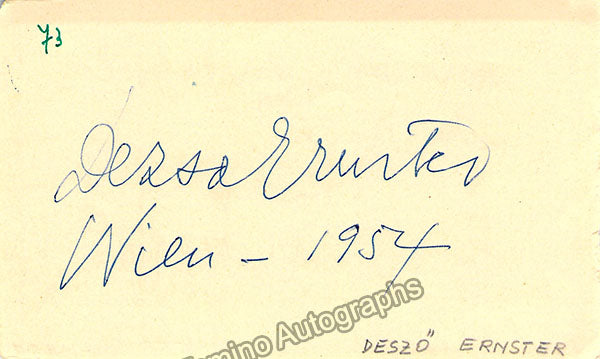 73
Dezso Ernster
Wien - 1954
Tamino Autographs
DESZŐ ERNSTER